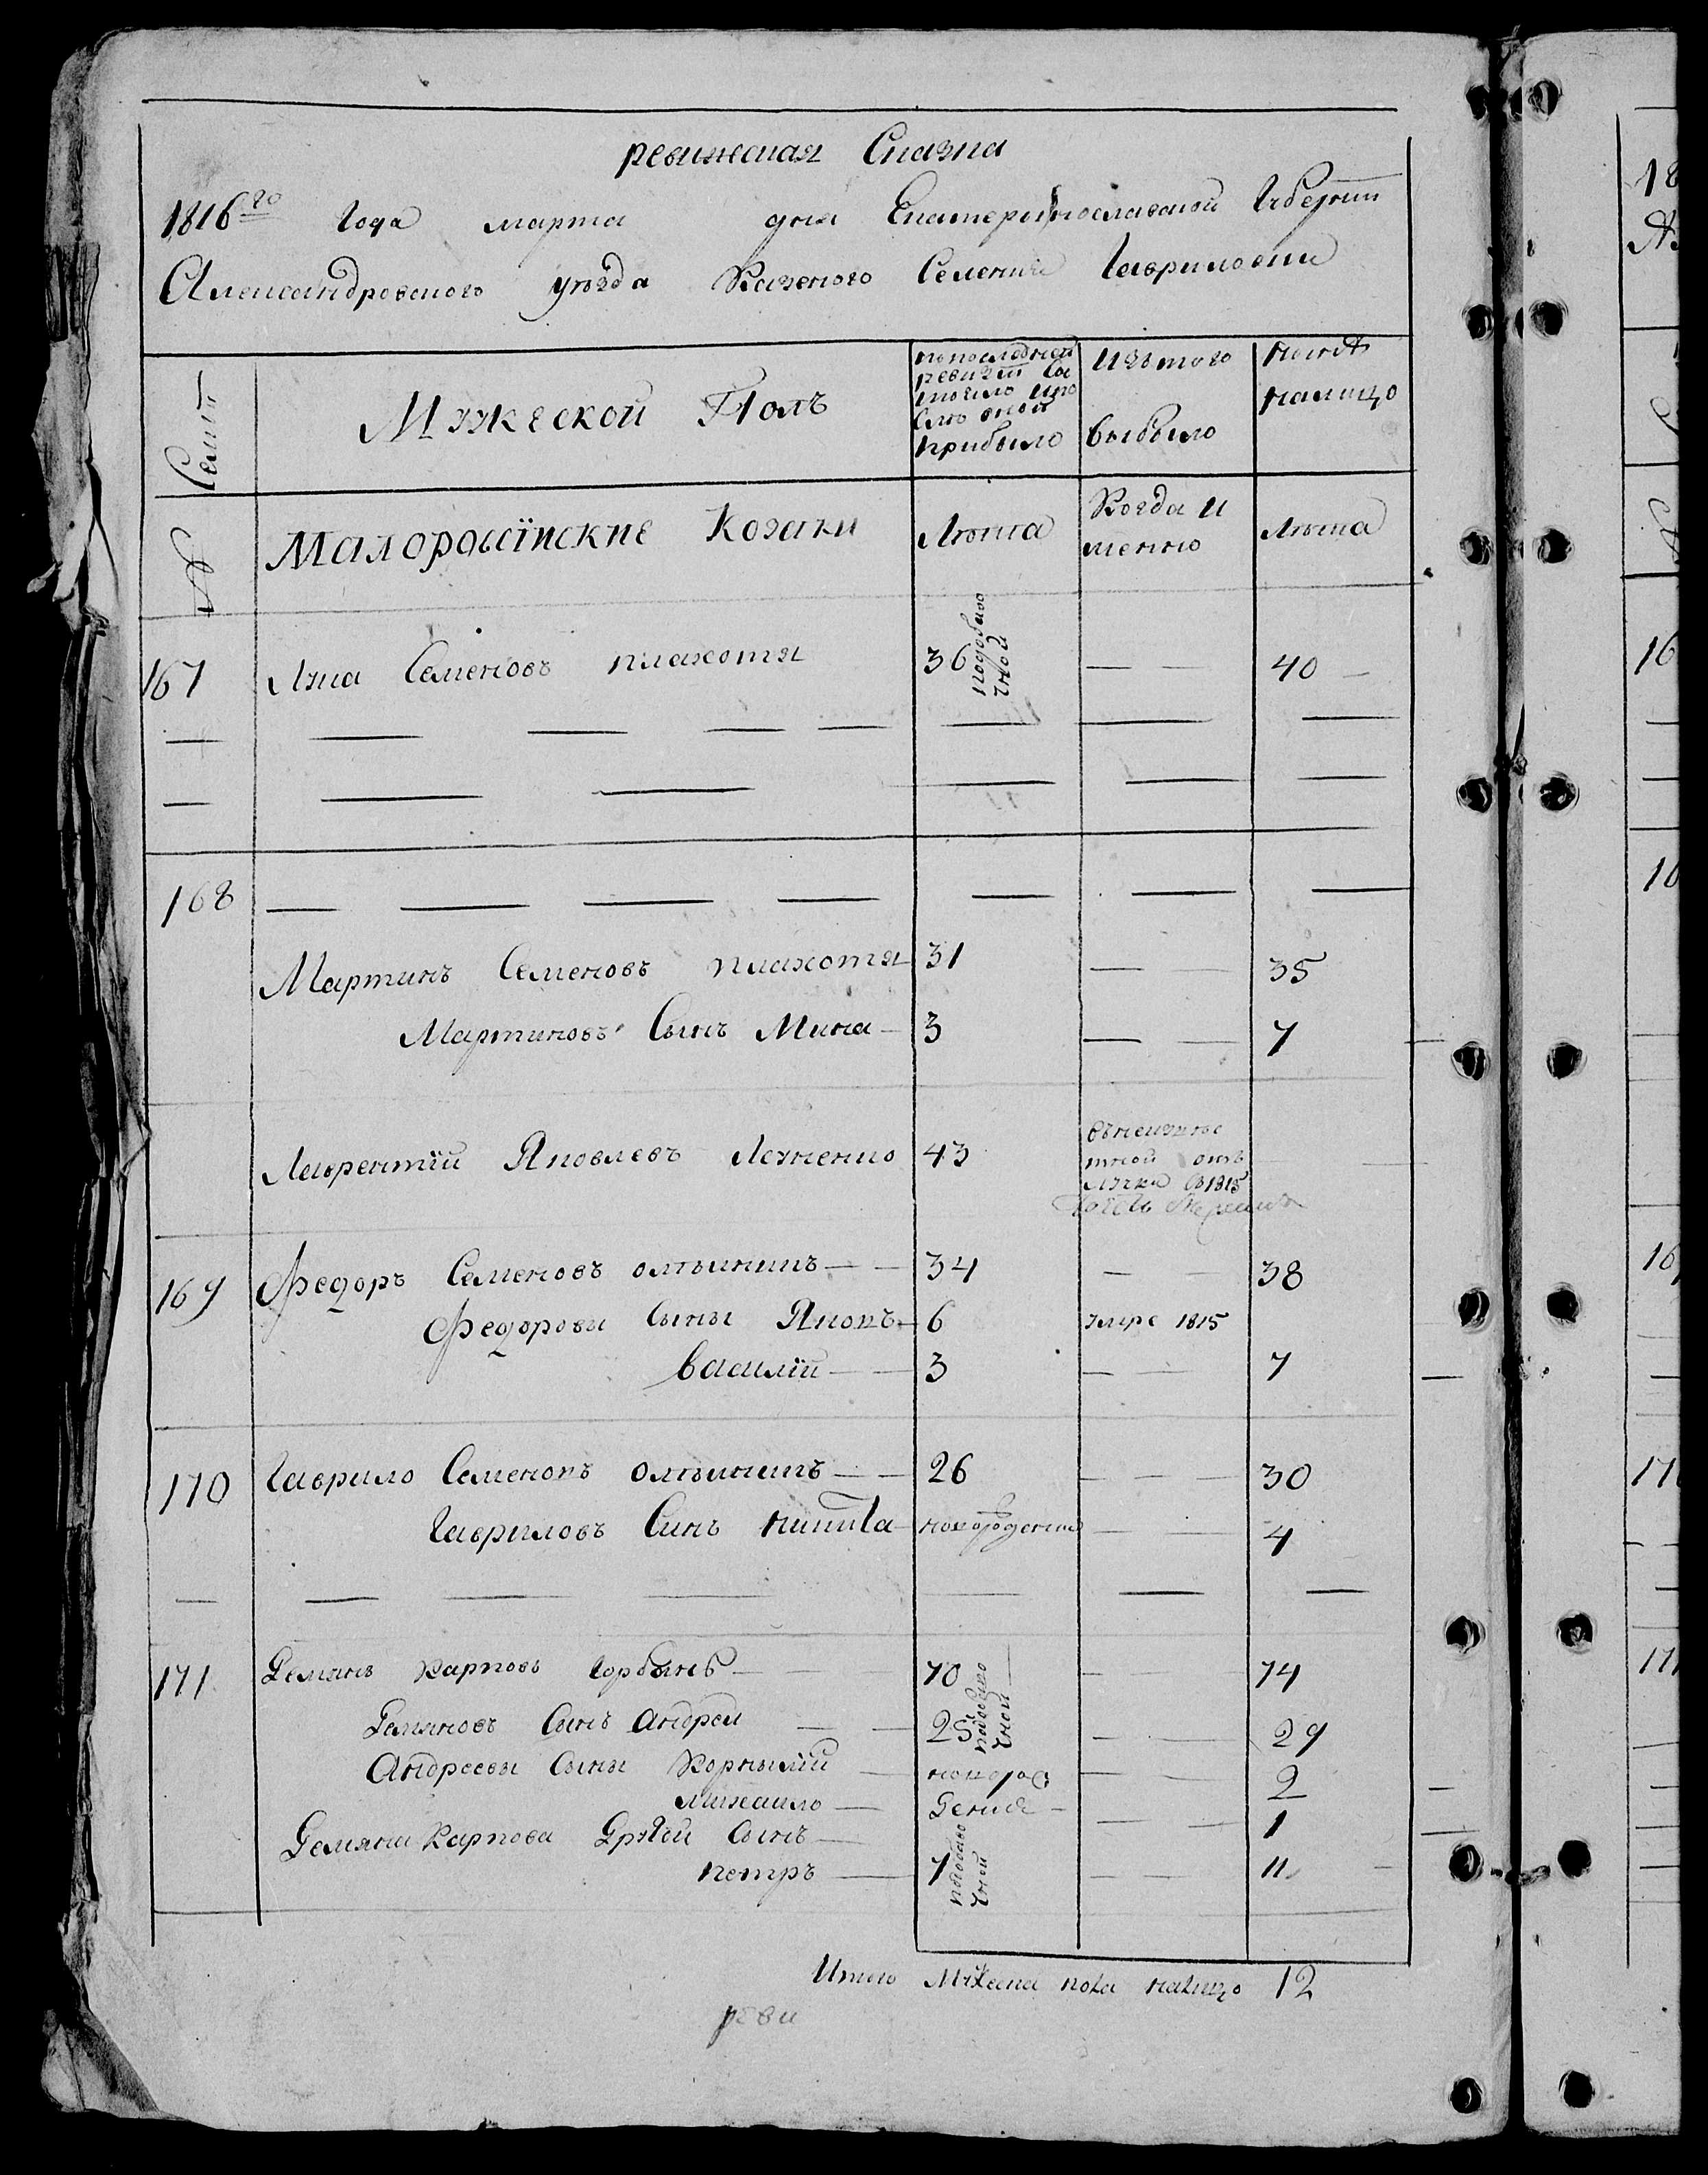 ревижская Сказка
1816го Года марта дня Екатеринославской Губернии
Александровского уезда Казеного Селения Гавриловки
Семии
Мужеской Полъ
по последней
ревизии Со
стояло ипо
слѣ оной
прибыло
Изътого
выбыло
Нынѣ
налицо
№
Малоросс̈ийские Козаки
Лѣта
Когда и
менно
Лѣта
167 Лука Семеновъ плахотя 36 — — 40 —
168 — — — —
Мартинъ Семеновъ плахотя 31 — 35
Мартиновъ Сынъ Мина — 3 — — 7
Лаврентій Яковлевъ 43
отъ
лучки в1815
169 Федоръ Семеновъ — — 34 — 38
Федорови Сины Яковъ — 6 умре 1815
василій — — 3 — — 7
170 Гаврило Семеновъ — — 26 — — 30
Гавриловъ Синъ никита новорожденой — — 4
171 Демянъ Карповъ Горбань — 70 — — 74
Демяновъ Синъ Андрей — — 25 — — 29
Андреевы Сыны Корнылій — новорож — — 2
михайло — Дение — — — 1
Демяна Карпова Другой Сынъ —
петръ — 7 — — 11
Итого Мужеска пола налицо 12
реви